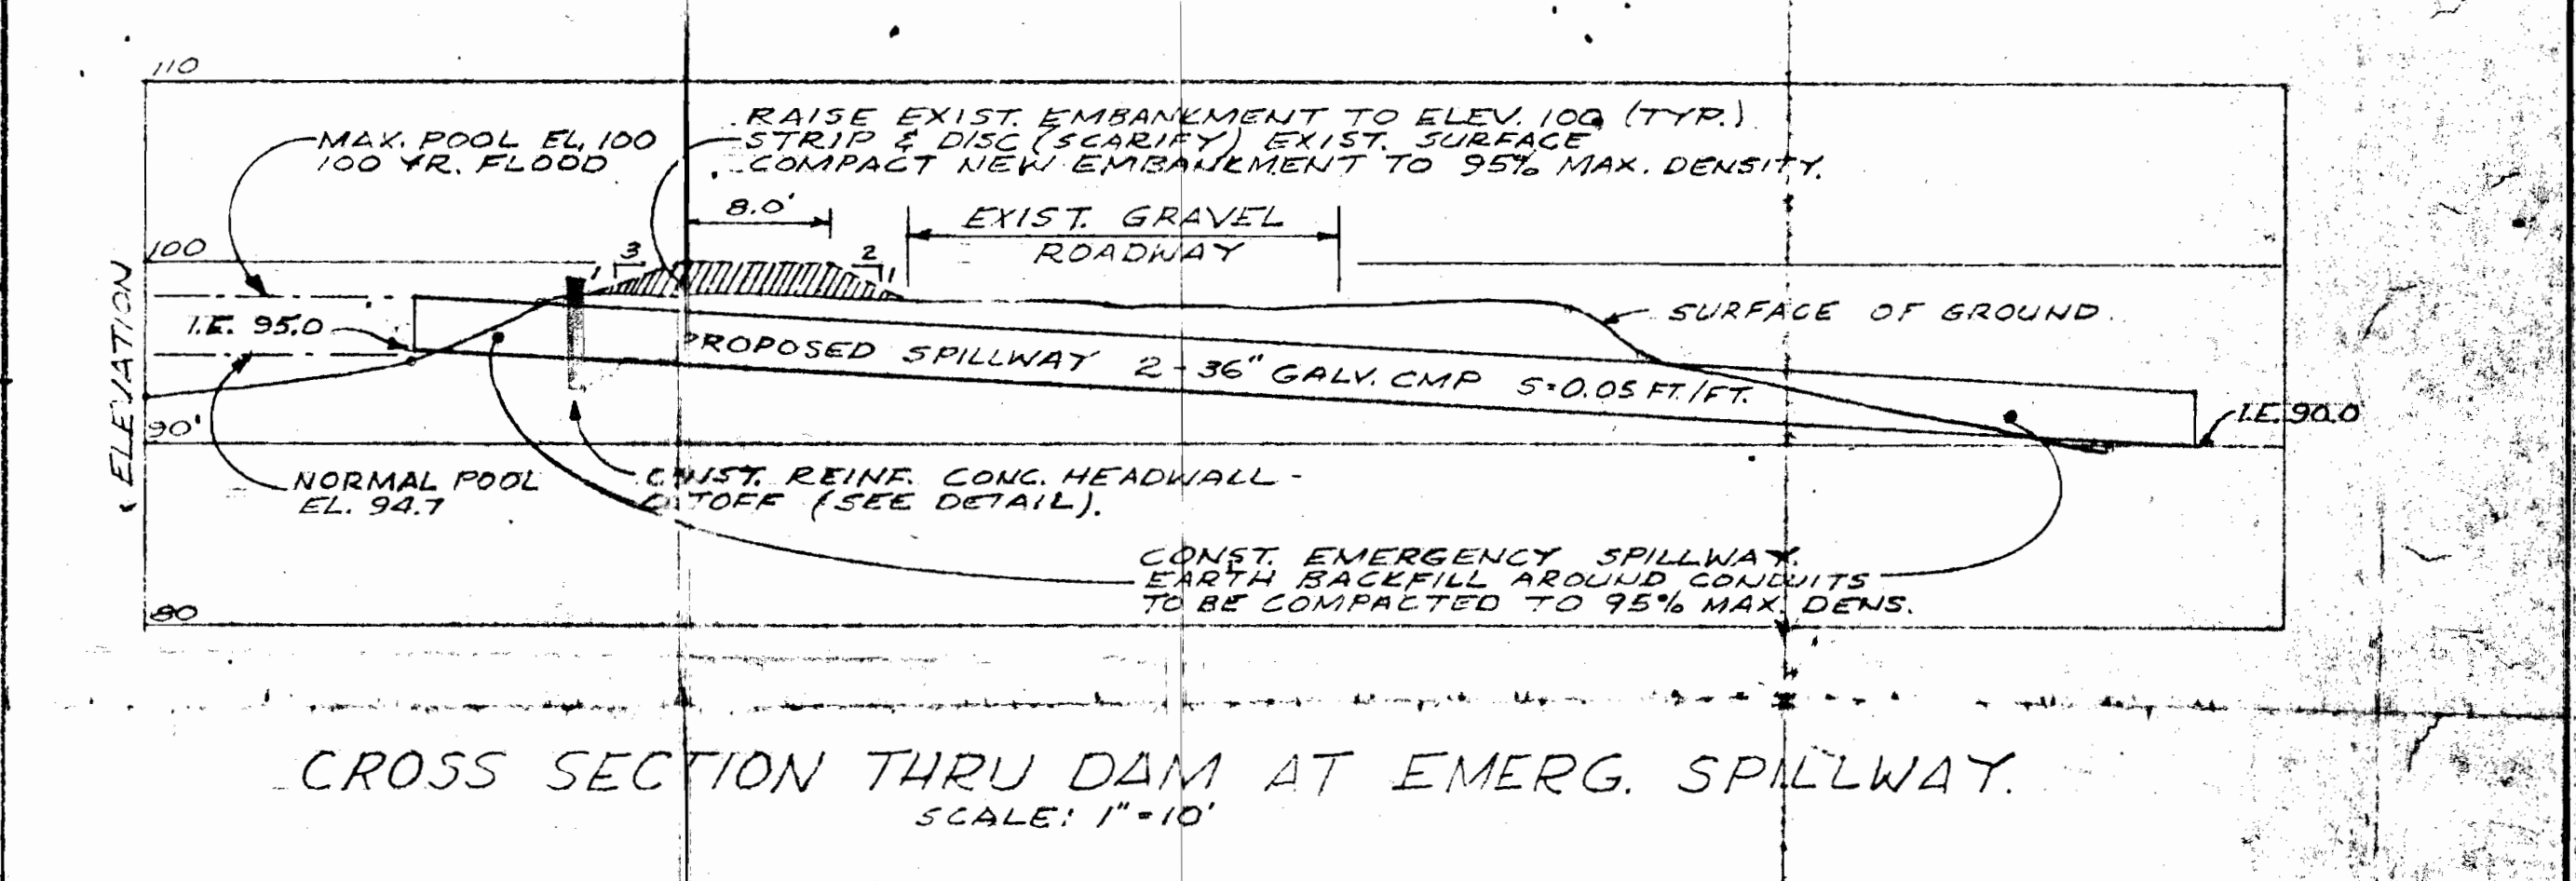 110
RAISE EXIST. EMBANKMENT TO ELEV. 100 (TYP.)
STRIP & DISC (SCARIFY) EXIST. SURFACE
COMPACT NEW EMBANKMENT TO 95% MAX. DENSITY.
MAX. POOL EL. 100
100 YR. FLOOD
8.0'
EXIST. GRAVEL
ROADWAY
100
1 3
2 1
I.E. 95.0
SURFACE OF GROUND.
PROPOSED SPILLWAY 2-36" GALV. CMP S=0.05 FT./FT.
ELEVATION
90'
I.E. 90.0
NORMAL POOL
EL. 94.7
CONST. REINF. CONC. HEADWALL-
CUTOFF (SEE DETAIL).
CONST. EMERGENCY SPILLWAY.
EARTH BACKFILL AROUND CONDUITS
TO BE COMPACTED TO 95% MAX. DENS.
80
CROSS SECTION THRU DAM AT EMERG. SPILLWAY.
SCALE: 1"=10'